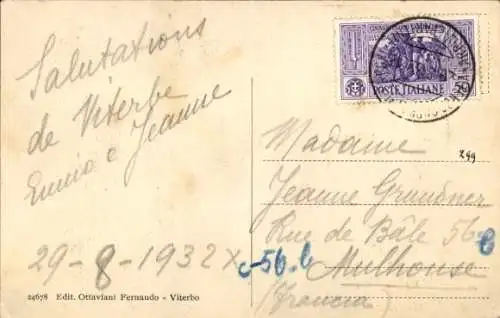 Salutations
de Viterbe
Ennio e Jeanne
29-8-1932 X
24678 Edit. Ottaviani Fernando - Viterbo
POSTE ITALIANE
50
299
Madame
Jeanne Grundner
Rue de Bâle 56
c-56.b
Mulhouse
(Francia)